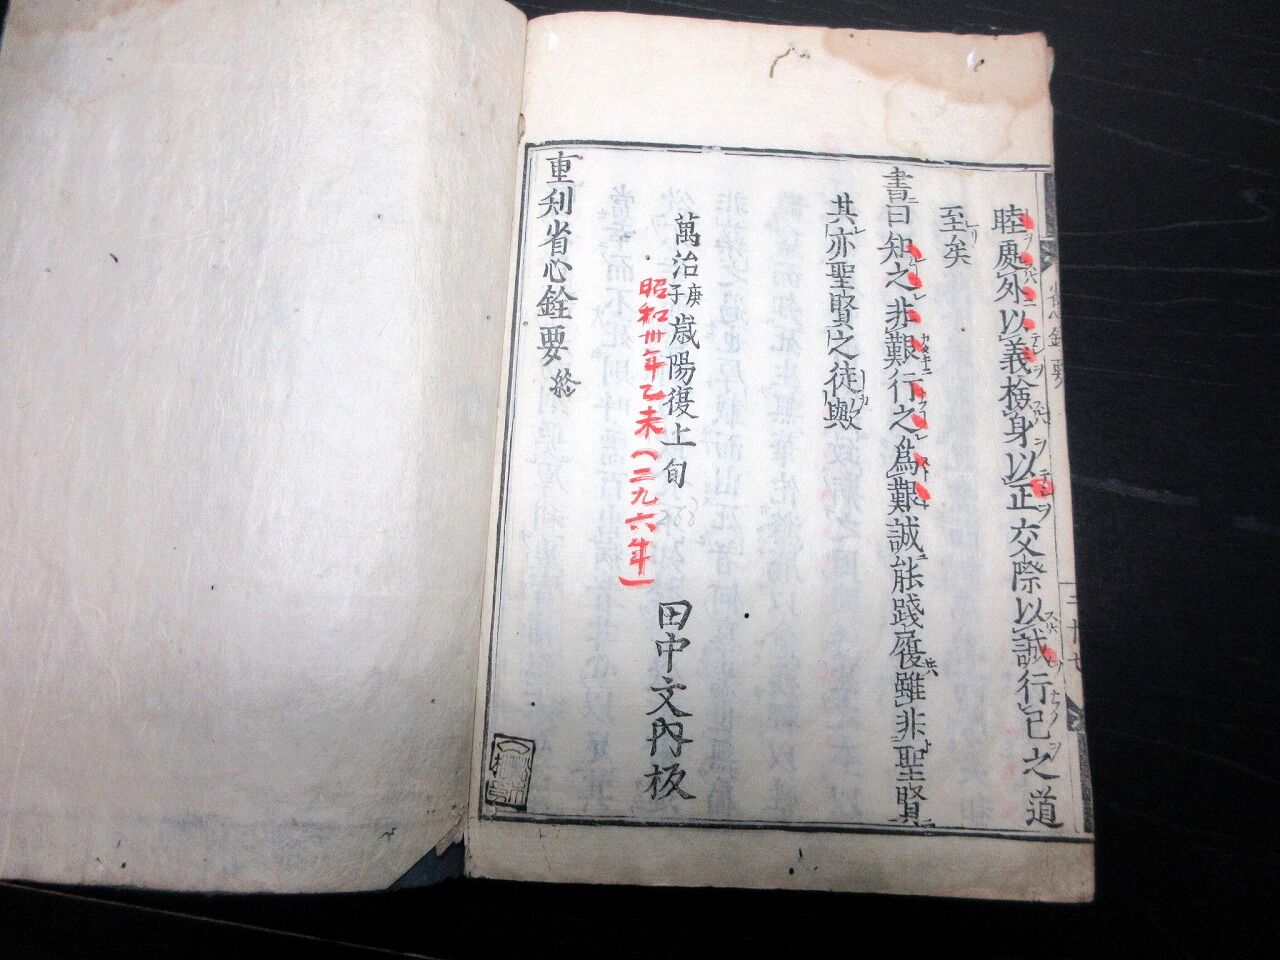 睦處外以義檢身以正交際以誠行已之道
至矣
書曰知之非艱行之爲艱誠能踐履雖非聖賢
其亦聖賢之徒歟
萬治庚子歳陽復上旬
昭和卅年乙未(二九六年)
田中文内板
重刻省心銓要終
省心銓要
二十七